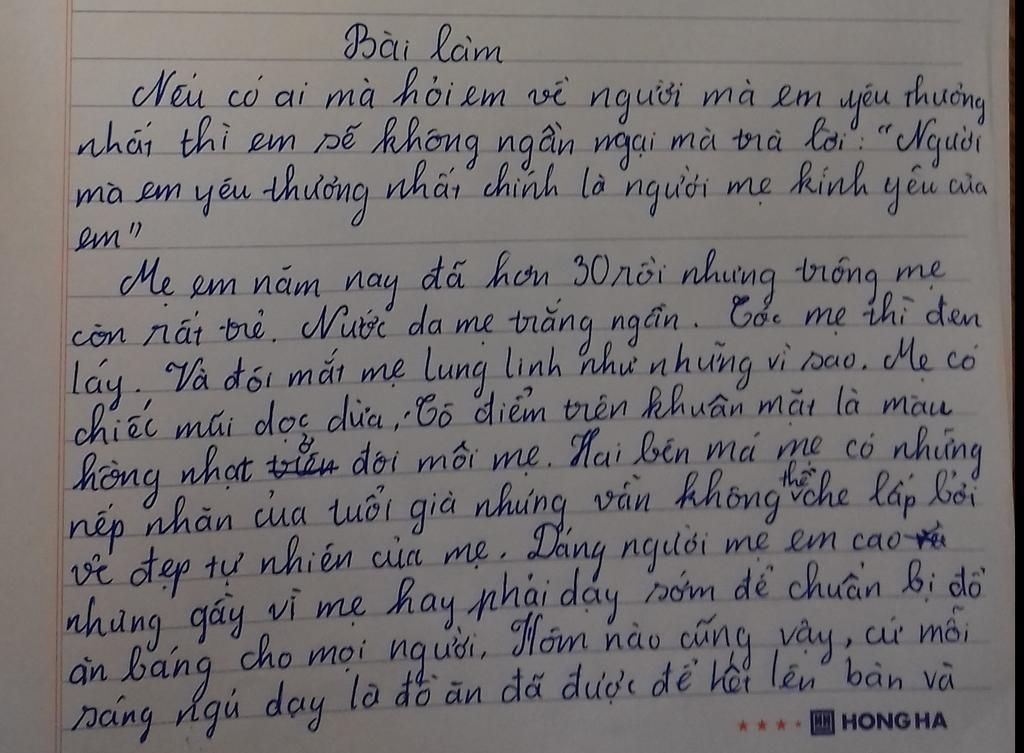 Bài làm
Nếu có ai mà hỏi em về người mà em yêu thương
nhất thì em sẽ không ngần ngại mà trả lời: "Người
mà em yêu thương nhất chính là người mẹ kính yêu của
em"
Mẹ em năm nay đã hơn 30 rồi nhưng trông mẹ
còn rất trẻ. Nước da mẹ trắng ngần. Tóc mẹ thì đen
láy. Và đôi mắt mẹ lung linh như những vì sao. Mẹ có
chiếc mũi dọc dừa. Tô điểm trên khuân mặt là màu
hồng nhạt ở đôi môi mẹ. Hai bên má mẹ có những
nếp nhăn của tuổi già nhưng vẫn không thể che lấp bởi
vẻ đẹp tự nhiên của mẹ. Dáng người mẹ em cao
nhưng gầy vì mẹ hay phải dạy sớm để chuẩn bị đồ
ăn sáng cho mọi người. Hôm nào cũng vậy, cứ mỗi
sáng ngủ dạy là đồ ăn đã được để hết lên bàn và
HH HONG HA